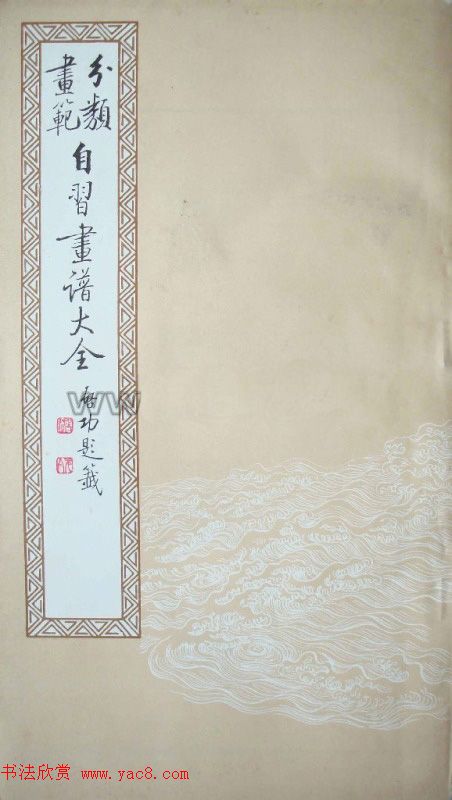 分類
畫範
自習畫谱大全
启功题籤
WW
书法欣赏 www.yac8.com